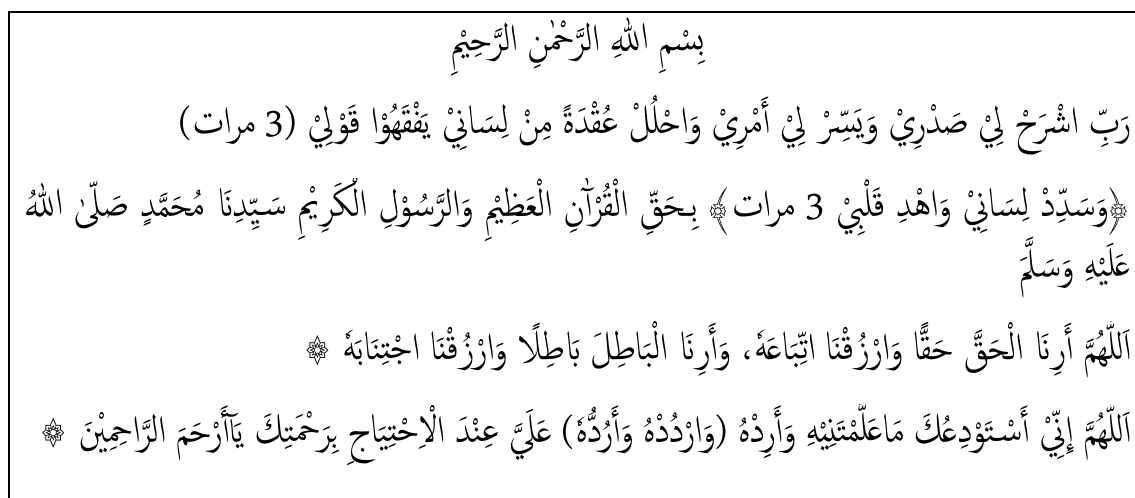 بِسْمِ اللّٰهِ الرَّحْمٰنِ الرَّحِيْمِ
رَبِّ اشْرَحْ لِيْ صَدْرِيْ وَيَسِّرْ لِيْ أَمْرِيْ وَاحْلُلْ عُقْدَةً مِنْ لِسَانِيْ يَفْقَهُوْا قَوْلِيْ (3 مرات)
﴿وَسَدِّدْ لِسَانِيْ وَاهْدِ قَلْبِيْ 3 مرات﴾ بِحَقِّ الْقُرْآنِ الْعَظِيْمِ وَالرَّسُوْلِ الْكَرِيْمِ سَيِّدِنَا مُحَمَّدٍ صَلّىٰ اللّٰهُ
عَلَيْهِ وَسَلَّمَ
اَللّٰهُمَّ أَرِنَا الْحَقَّ حَقًّا وَارْزُقْنَا اتِّبَاعَهٗ، وَأَرِنَا الْبَاطِلَ بَاطِلًا وَارْزُقْنَا اجْتِنَابَهٗ ۞
اَللّٰهُمَّ إِنِّيْ أَسْتَوْدِعُكَ مَاعَلَّمْتَنِيْهِ وَأَرِدْهُ (وَارْدُدْهُ وَأَرُدُّهٗ) عَلَيَّ عِنْدَ الْاِحْتِيَاجِ بِرَحْمَتِكَ يَآأَرْحَمَ الرَّاحِمِيْنَ ۞